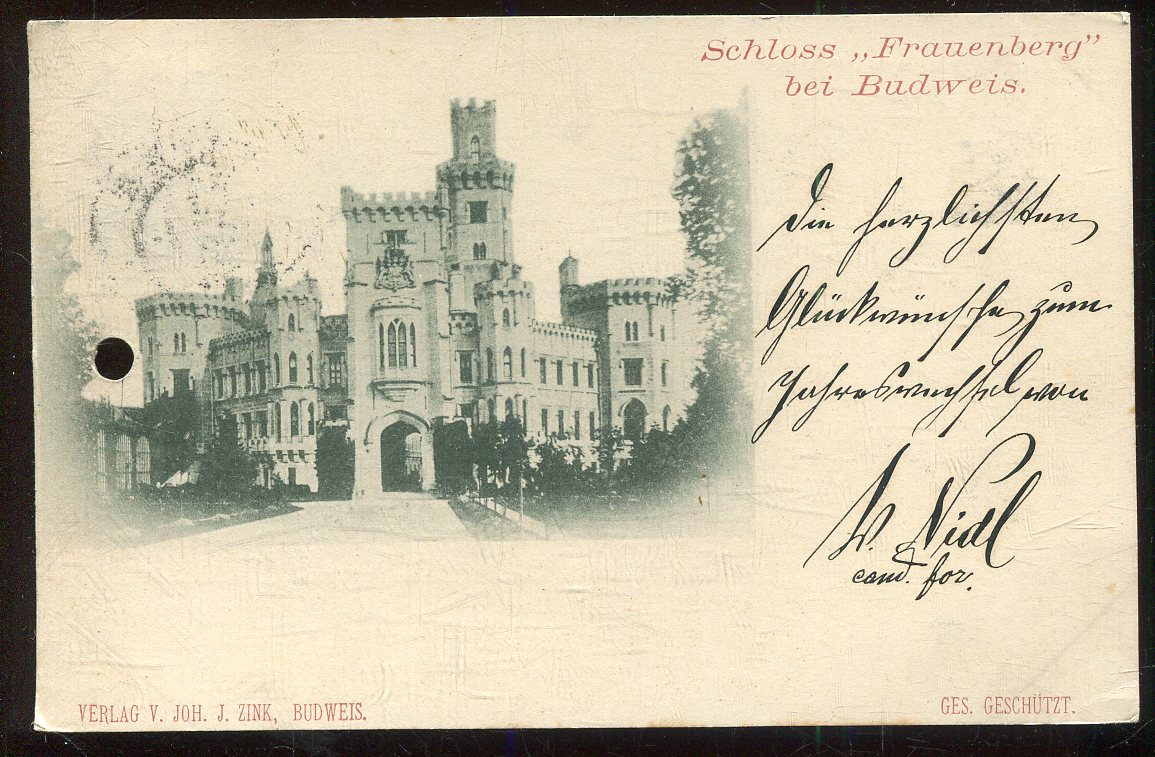 Schloss „Frauenberg”
bei Budweis.
Die herzlichsten
Glückwünsche zum
Jahreswechsel von
W. Nidl
cand. for.
VERLAG V. JOH. J. ZINK, BUDWEIS.
GES. GESCHÜTZT.